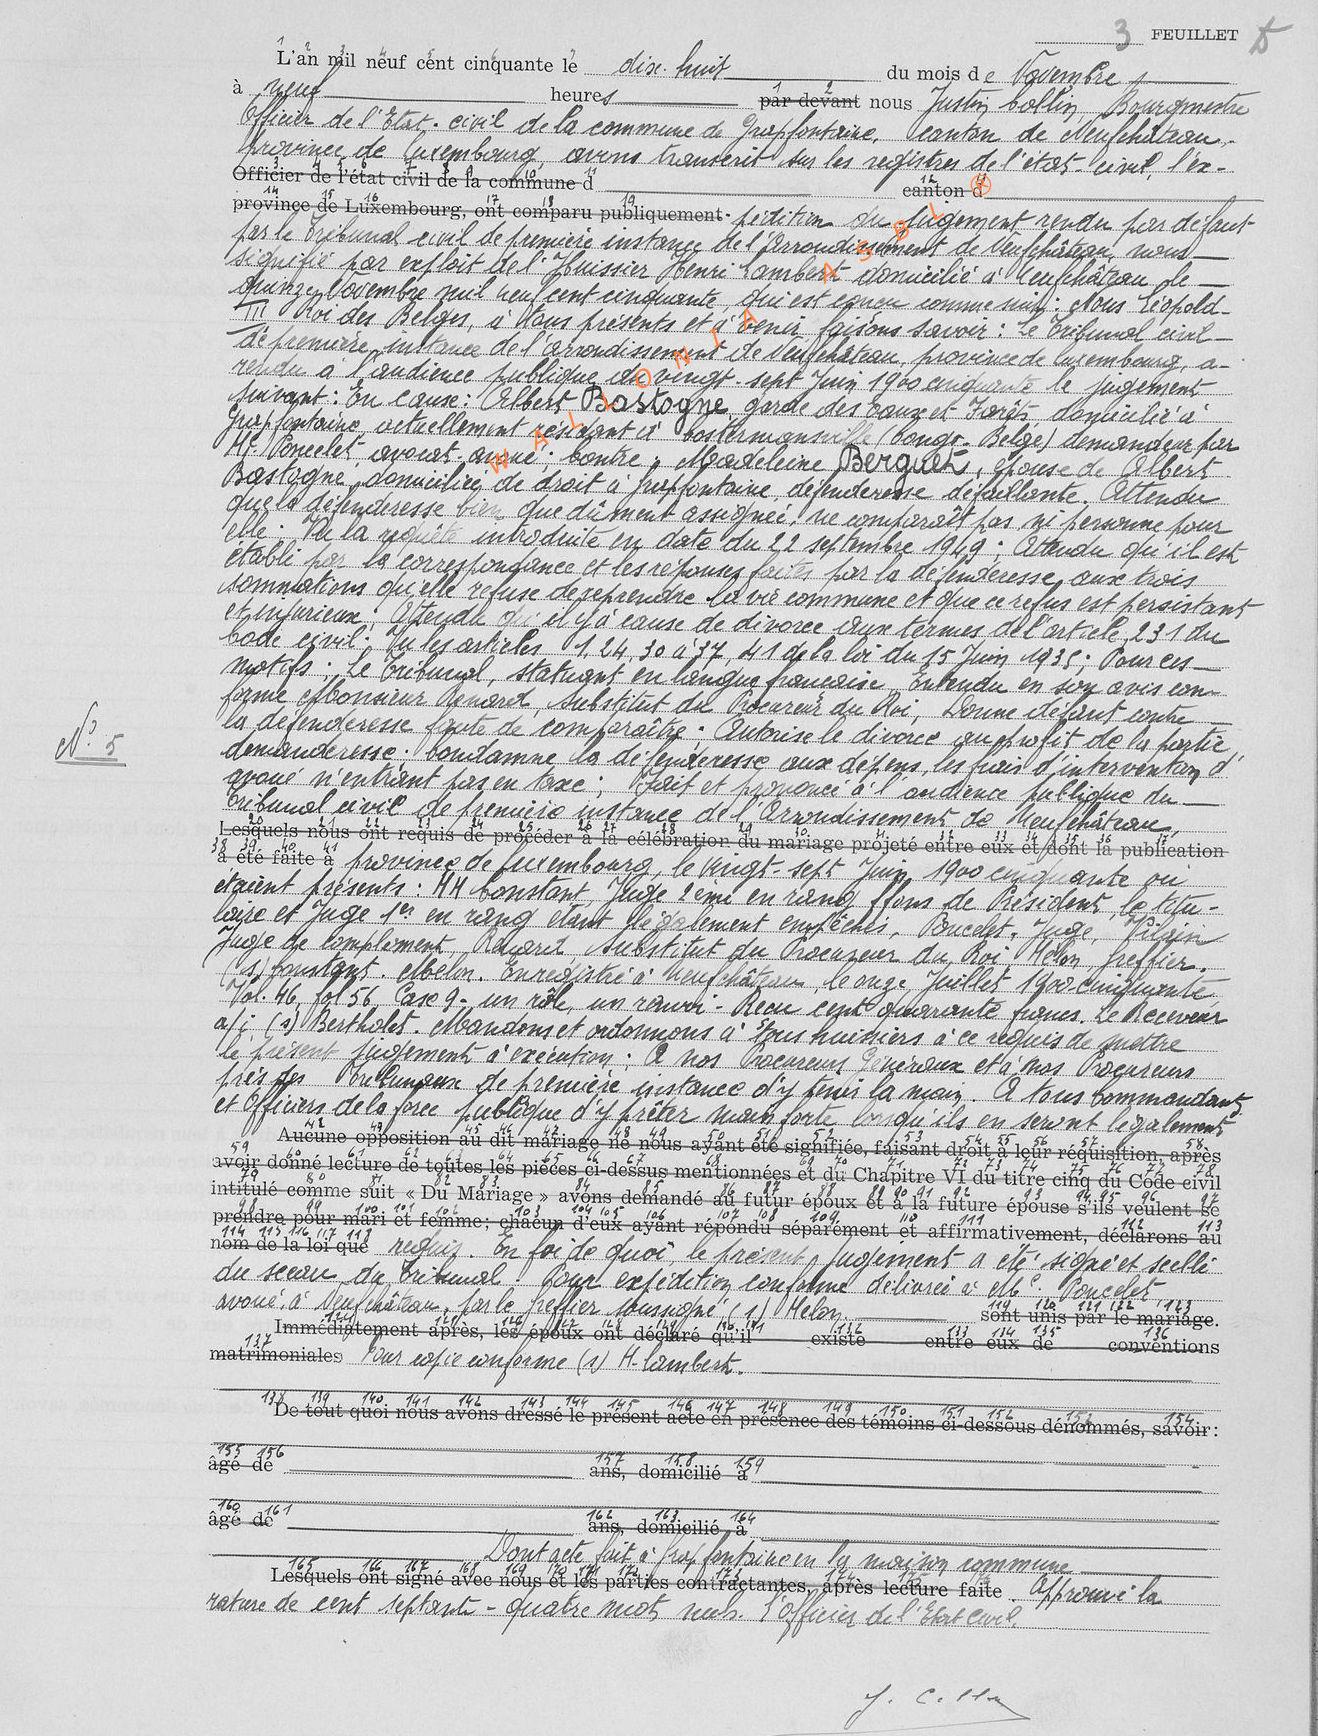 3 FEUILLET
L'an mil neuf cent cinquante le dix-huit du mois de Novembre
à neuf heures par devant nous Justin Collin Bourgmestre
Officier de l'Etat-civil de la commune de Grapfontaine, canton de Neufchâteau,
province de Luxembourg, avons transcrit sur les registres de l'état-civil, l'ex-
Officier de l'état civil de la commune d canton d
province de Luxembourg, ont comparu publiquement pédition du jugement rendu par défaut
par le Tribunal civil de première instance de l'Arrondissement de Neufchâteau, nous
signifié par exploit de l'Huissier Henri Lambert domicilié à Neufchâteau le
quinze Novembre mil neuf cent cinquante, qui est conçu comme suit: Nous Léopold
III Roi des Belges, à tous présents et à venir, faisons savoir: Le Tribunal civil
de première instance de l'arrondissement de Neufchâteau, province de Luxembourg, a
rendu à l'audience publique du vingt-sept Juin 1900 cinquante le jugement
suivant: En cause: Albert Bastogne, garde des Eaux et Forêts, domicilié à
Grapfontaine, actuellement résidant à Costermansville (Congo-Belge) demandeur par
Me Poncelet avocat-avoué; Contre: Madeleine Berguet, épouse de Albert
Bastogne, domiciliée de droit à Grapfontaine, défenderesse défaillante. Attendu
que la défenderesse bien que dûment assignée, ne comparaît pas ni personne pour
elle; Vu la requête introduite en date du 22 septembre 1949; Attendu qu'il est
établi par la correspondance et les réponses faites par la défenderesse aux trois
sommations qu'elle refuse de reprendre la vie commune et que ce refus est persistant
et injurieux; Attendu qu'il y a cause de divorce aux termes de l'article 231 du
Code civil; Vu les articles 1, 24, 30 à 37, 41 de la loi du 15 Juin 1935; Pour ces
motifs: Le Tribunal, statuant en langue française, Entendu en son avis con-
forme Monsieur Renard, Substitut du Procureur du Roi, Donne défaut contre
la défenderesse faute de comparaître; Autorise le divorce au profit de la partie
demanderesse; Condamne la défenderesse aux dépens, les frais d'intervention d'
avoué n'entrant pas en taxe; Fait et prononcé à l'audience publique du
N° 5
Tribunal civil de première instance de l'Arrondissement de Neufchâteau,
Lesquels nous ont requis de procéder à la célébration du mariage projeté entre eux et dont la publication
a été faite à province de Luxembourg, le vingt-sept Juin 1900 cinquante ou
étaient présents: MM Constant, Juge 2ème en rang ffons de Président, le titu-
laire et Juge 1er en rang étant légalement empêchés, Poncelet, Juge,
Juge de complément, Renard Substitut du Procureur du Roi, Melon, greffier.
(s) Constant. Melon. Enregistré à Neufchâteau le onze Juillet 1900 cinquante
Vol. 46, fol 56, Case 9 - un rôle, un renvoi - Reçu cent quarante francs. Le Receveur
a/i (s) Bertholet. Mandons et ordonnons à tous huissiers à ce requis de mettre
le présent jugement à exécution; A nos Procureurs Généraux et à nos Procureurs
près des Tribunaux de première instance d'y tenir la main. A tous Commandants
et Officiers de la force publique d'y prêter main forte lorsqu'ils en seront légalement
Aucune opposition au dit mariage ne nous ayant été signifiée, faisant droit à leur réquisition, après
avoir donné lecture de toutes les pièces ci-dessus mentionnées et du Chapitre VI du titre cinq du Code civil
intitulé comme suit « Du Mariage » avons demandé au futur époux et à la future épouse s'ils veulent se
prendre pour mari et femme; chacun d'eux ayant répondu séparément et affirmativement, déclarons au
nom de la loi que requis. En foi de quoi, le présent jugement a été signé et scellé
du sceau du Tribunal. Pour expédition conforme délivrée à Me Poncelet
avoué à Neufchâteau, par le greffier soussigné (s) Melon. sont unis par le mariage.
Immédiatement après, les époux ont déclaré qu'il existe entre eux de conventions
matrimoniales Pour copie conforme (s) H. Lambert.
De tout quoi nous avons dressé le présent acte en présence des témoins ci-dessous dénommés, savoir:
âgé de ans, domicilié à
âgé de ans, domicilié à
Dont acte fait à Grapfontaine en la maison commune
Lesquels ont signé avec nous et les parties contractantes, après lecture faite. Approuvé la
rature de cent septante-quatre mots nuls. L'Officier de l'Etat Civil.
J. Collin
WALLONIA ASBL